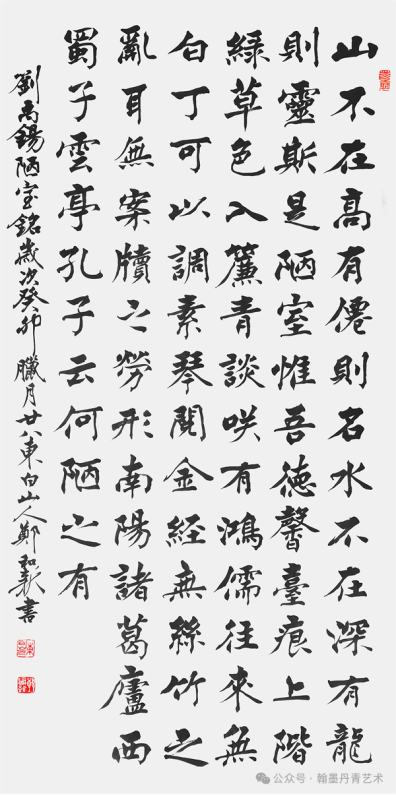 山不在高有僊則名水不在深有龍
則靈斯是陋室惟吾德馨臺痕上階
綠草色入簾青談咲有鴻儒往來無
白丁可以調素琴閱金經無絲竹之
亂耳無案牘之勞形南陽諸葛廬西
蜀子雲亭孔子云何陋之有
劉禹錫陋室銘歲次癸卯臘月廿八東白山人鄭書
公众号·翰墨丹青艺术